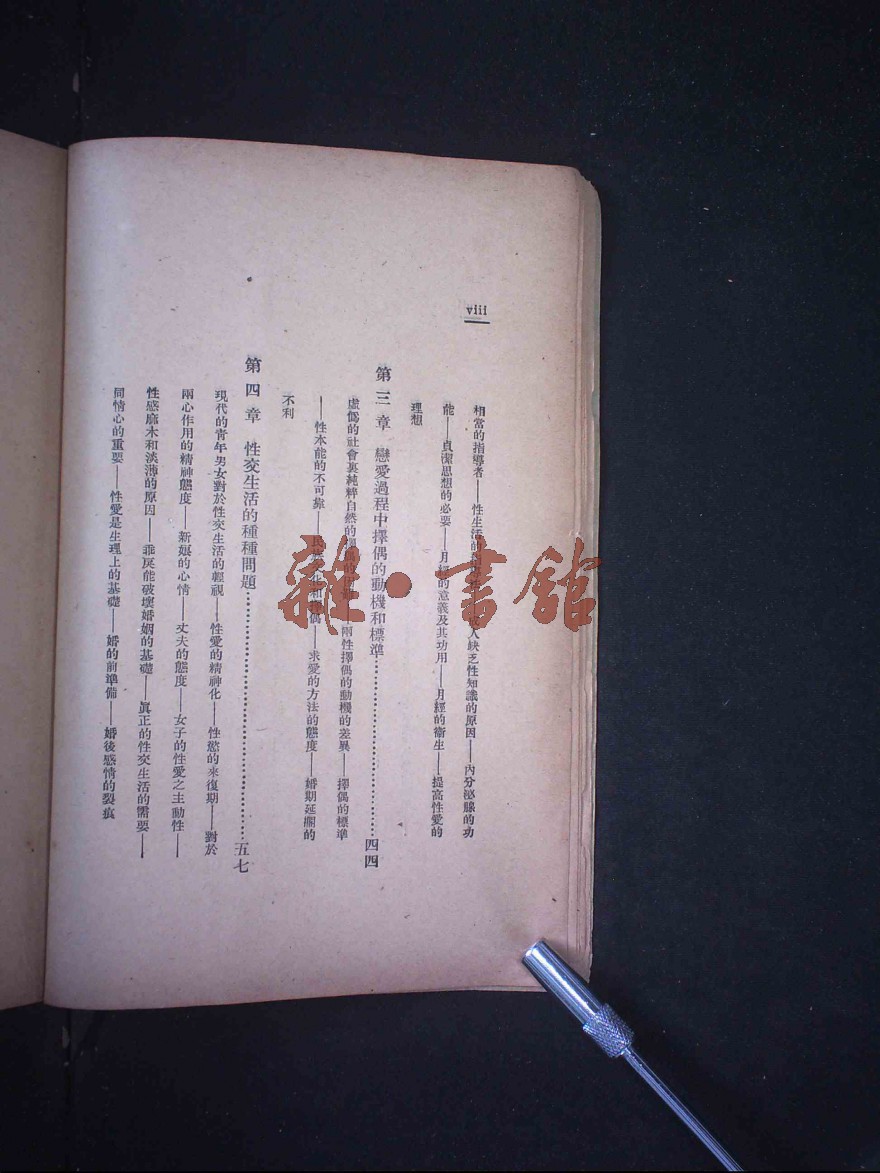 viii
相當的指導者——性生活的 人缺乏性知識的原因——內分泌腺的功
能——貞潔思想的必要——月經的意義及其功用——月經的衛生——提高性愛的
理想
第三章 戀愛過程中擇偶的動機和標準……………………四四
虛僞的社會裏純粹自然的 兩性擇偶的動機的差異——擇偶的標準
——性本能的不可靠—— 偶——求愛的方法的態度——婚期延期的
不利
第四章 性交生活的種種問題……………………五七
現代的青年男女對於性交生活的輕視——性愛的精神化——性慾的來復期——對於
兩心作用的精神態度——新娘的心情——丈夫的態度——女子的性愛之主動性——
性感麻木和淡薄的原因——乖戾能破壞婚姻的基礎——眞正的性交生活的需要——
同情心的重要——性愛是生理上的基礎——婚的前準備——婚後感情的裂痕
雜·書館